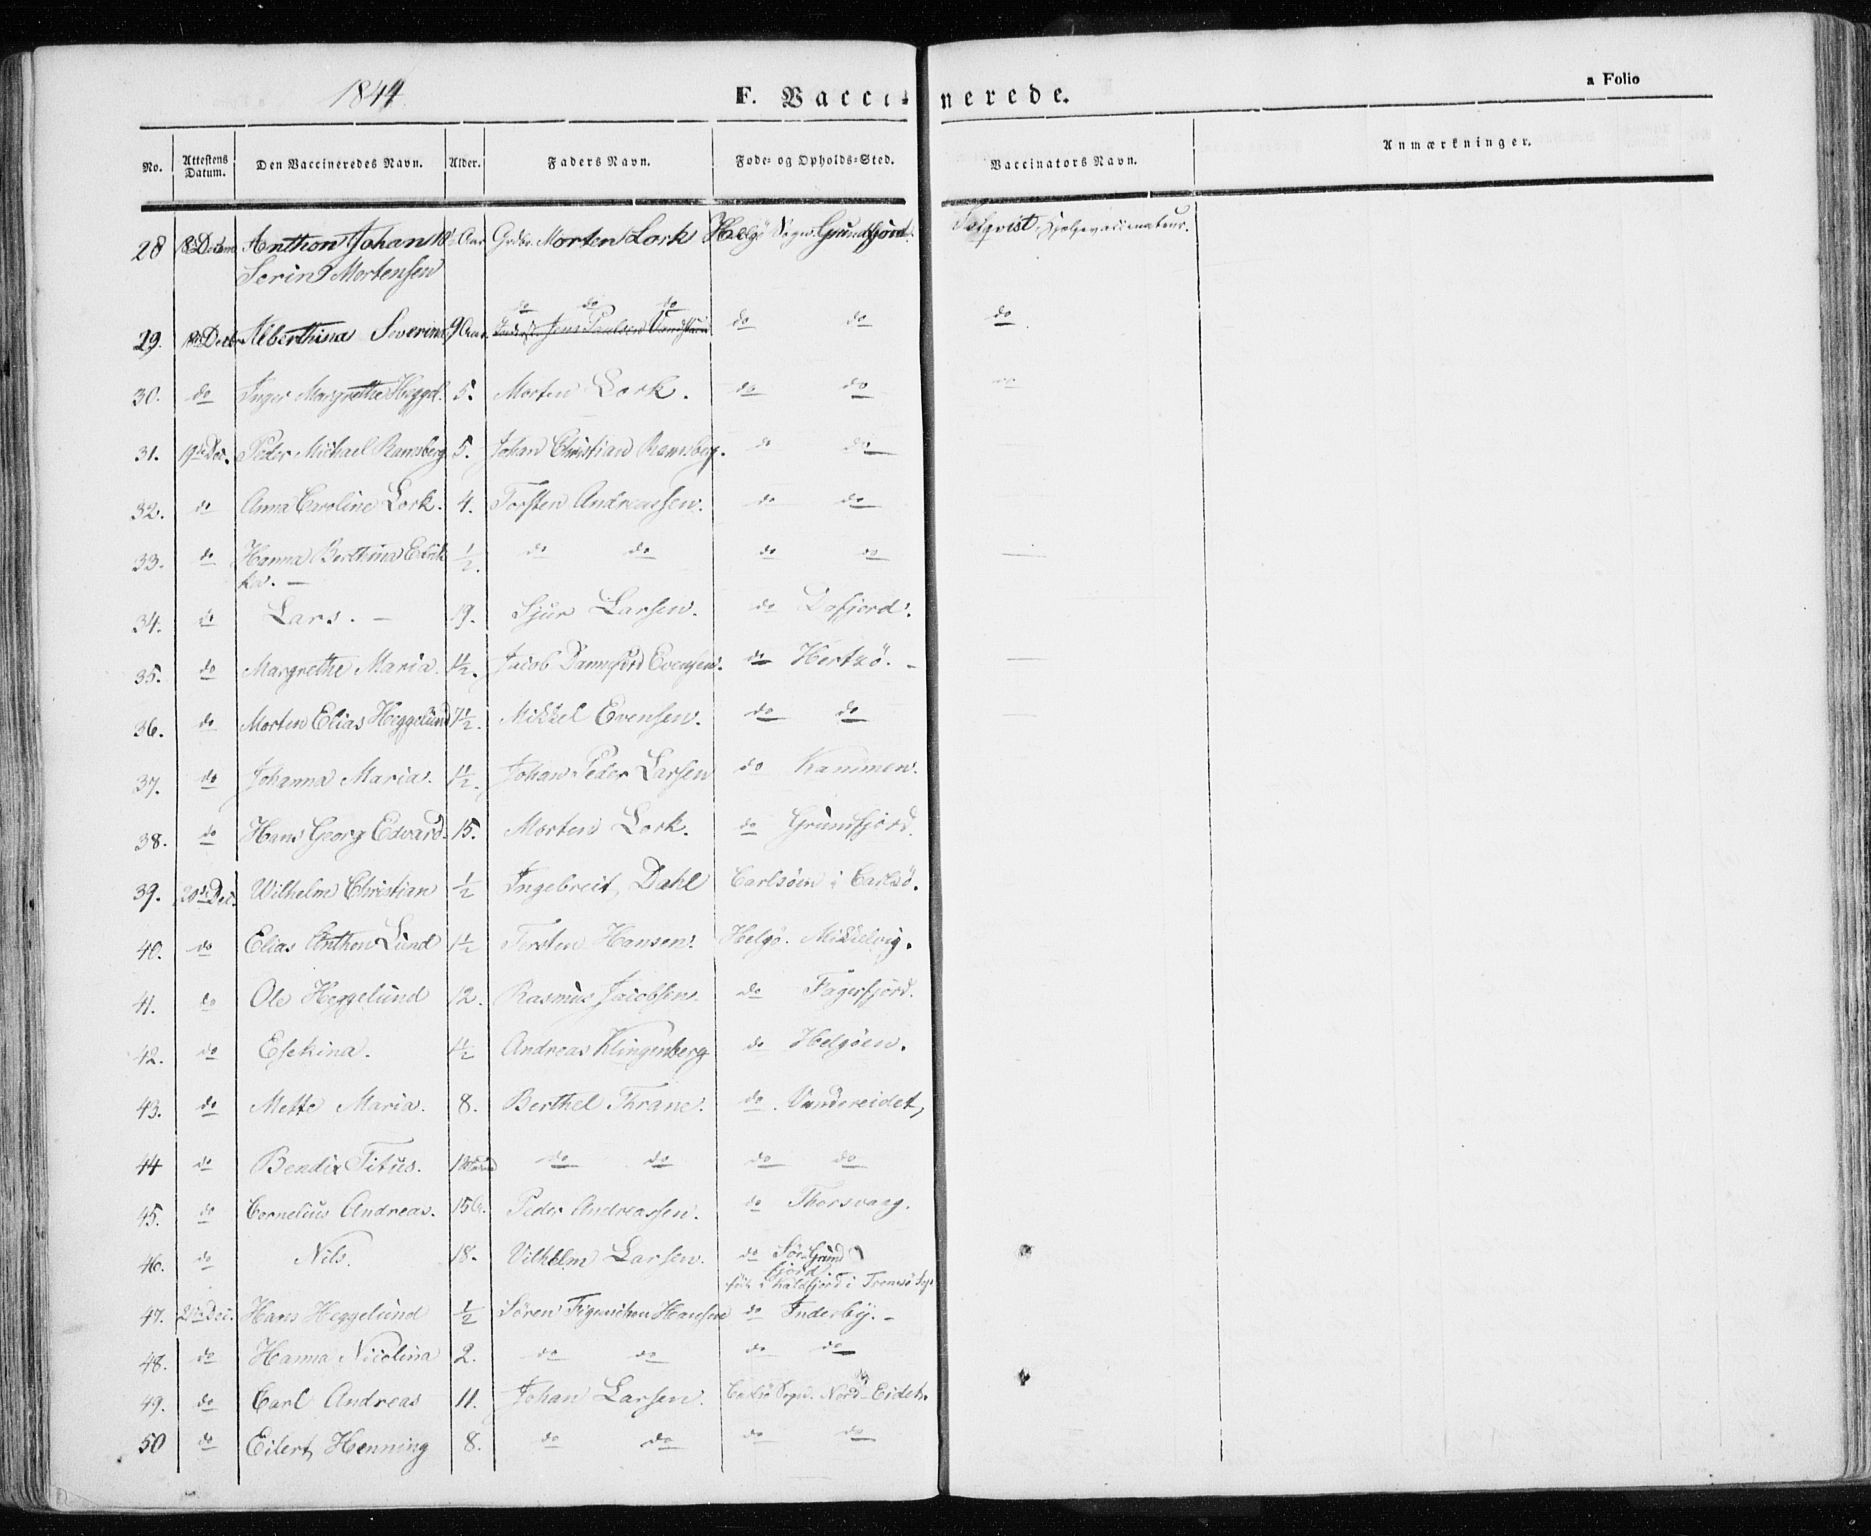 1844
F. Vaccinerede.
a Folio
No. Attestens Datum. Den Vaccineredes Navn. Alder. Faders Navn. Føde- og Opholds-Sted. Vaccinators Navn. Anmærkninger.
28 18de Decbr Anthon Johan 10 Aar Grdbr. Morten Lork Helgø Sogn Grundfjord. Hjelpevaccinateur.
Serin Mortensen
do do do
29. 18de Decbr Alberthina Severine 9 Aar Jens Paulsen do do do
30. do Inger Margrethe Heggel. 5. Morten Lork. do do do
31. 19de Dec. Peder Michael Ramsberg 5. Johan Christian Ramsberg. do do
32. do Anna Caroline Lork. 4. Torsten Andreassen. do do
33. do Hanna Berthina 1/2. do do do do —
34. do Lars. — 19. Sjur Larsen. do Dafjord.
35. do Margrethe Maria. 1 1/2. Jacob Evensen. do Hersø. — —
36. do Morten Elias Heggelund 7 1/2. Mikkel Evensen. do do —
37. do Johanna Maria. 1 1/2. Johan Peder Larsen do Kammen.
38. do Hans Georg Edvard. 15. Morten Lork. do Grundfjord.
39. 20de Dec. Wilhelm Christian 1/2 Ingebreit Dahl Carlsøen i Carlsø.
40. do Elias Anthon Lund 1 1/2 Torsten Hansen. Helgø. Mikkelvig.
41. do Ole Heggelund 12. Rasmus Jacobsen. do Fagerfjord.
42. do Esekina. 1 1/2 Andreas Klingenberg do Helgøen.
43. do Mette Maria. 8. Berthel Thrane. do. Vandereidet,
44 do Bendix Titus. do do do do
45. do Cornelius Andreas. 15 A. Peder Andreassen. do Thorsvaag.
46. do Nils. 18. Vilhelm Larsen. do Sør Grund
fjord
født i Kaldfjord i Tromsø Sogn
47. 21de Dec. Hans Heggelund 1/2 Søren Hansen do Inderby. —
48. do Hanna Nicolina 2. do do do do
49. do Carl Andreas 11. Johan Larsen. Carlsø Sogn. Nord-Eidet.
50 do Eilert Henning 8. do do do do